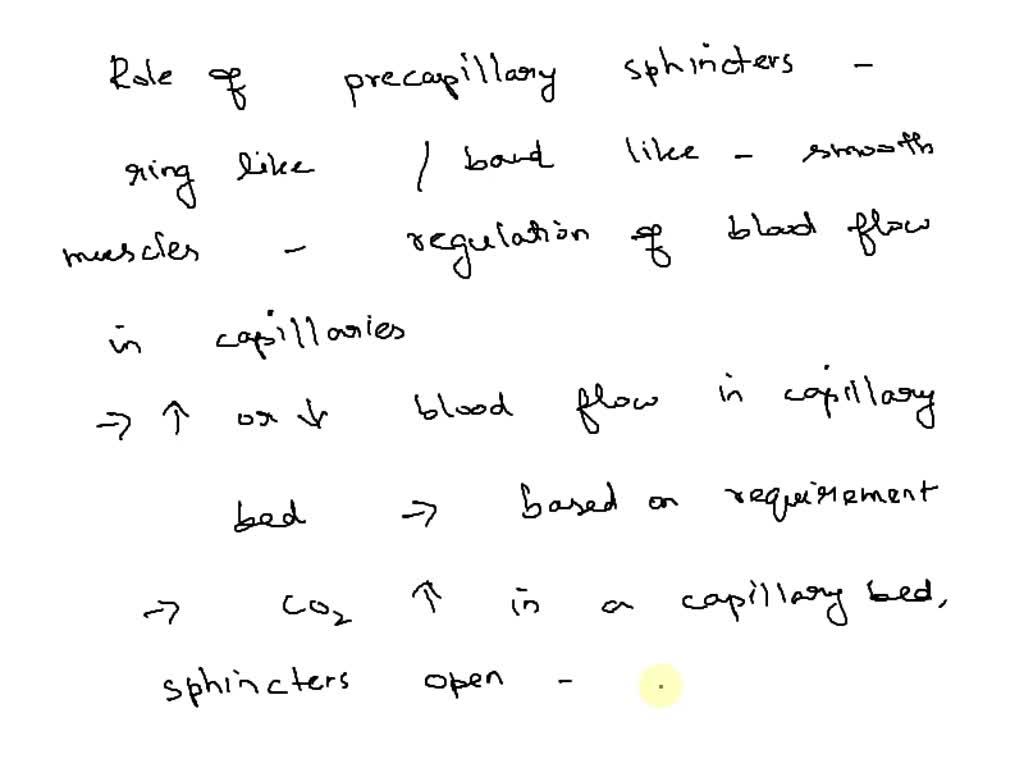 Role of precapillary sphincters -
ring like / band like - smooth
muscles - regulation of blood flow
in capillaries
→ ↑ or ↓ blood flow in capillary
bed → based on requirement
→ CO₂ ↑ in a capillary bed,
sphincters open -